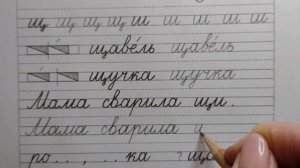 щ щ щ щ ш ш ш ш ш ш
щаве́ль щаве́ль
щучка щучка
Мама сварила щи.
Мама сварила и
ро.., ..ка